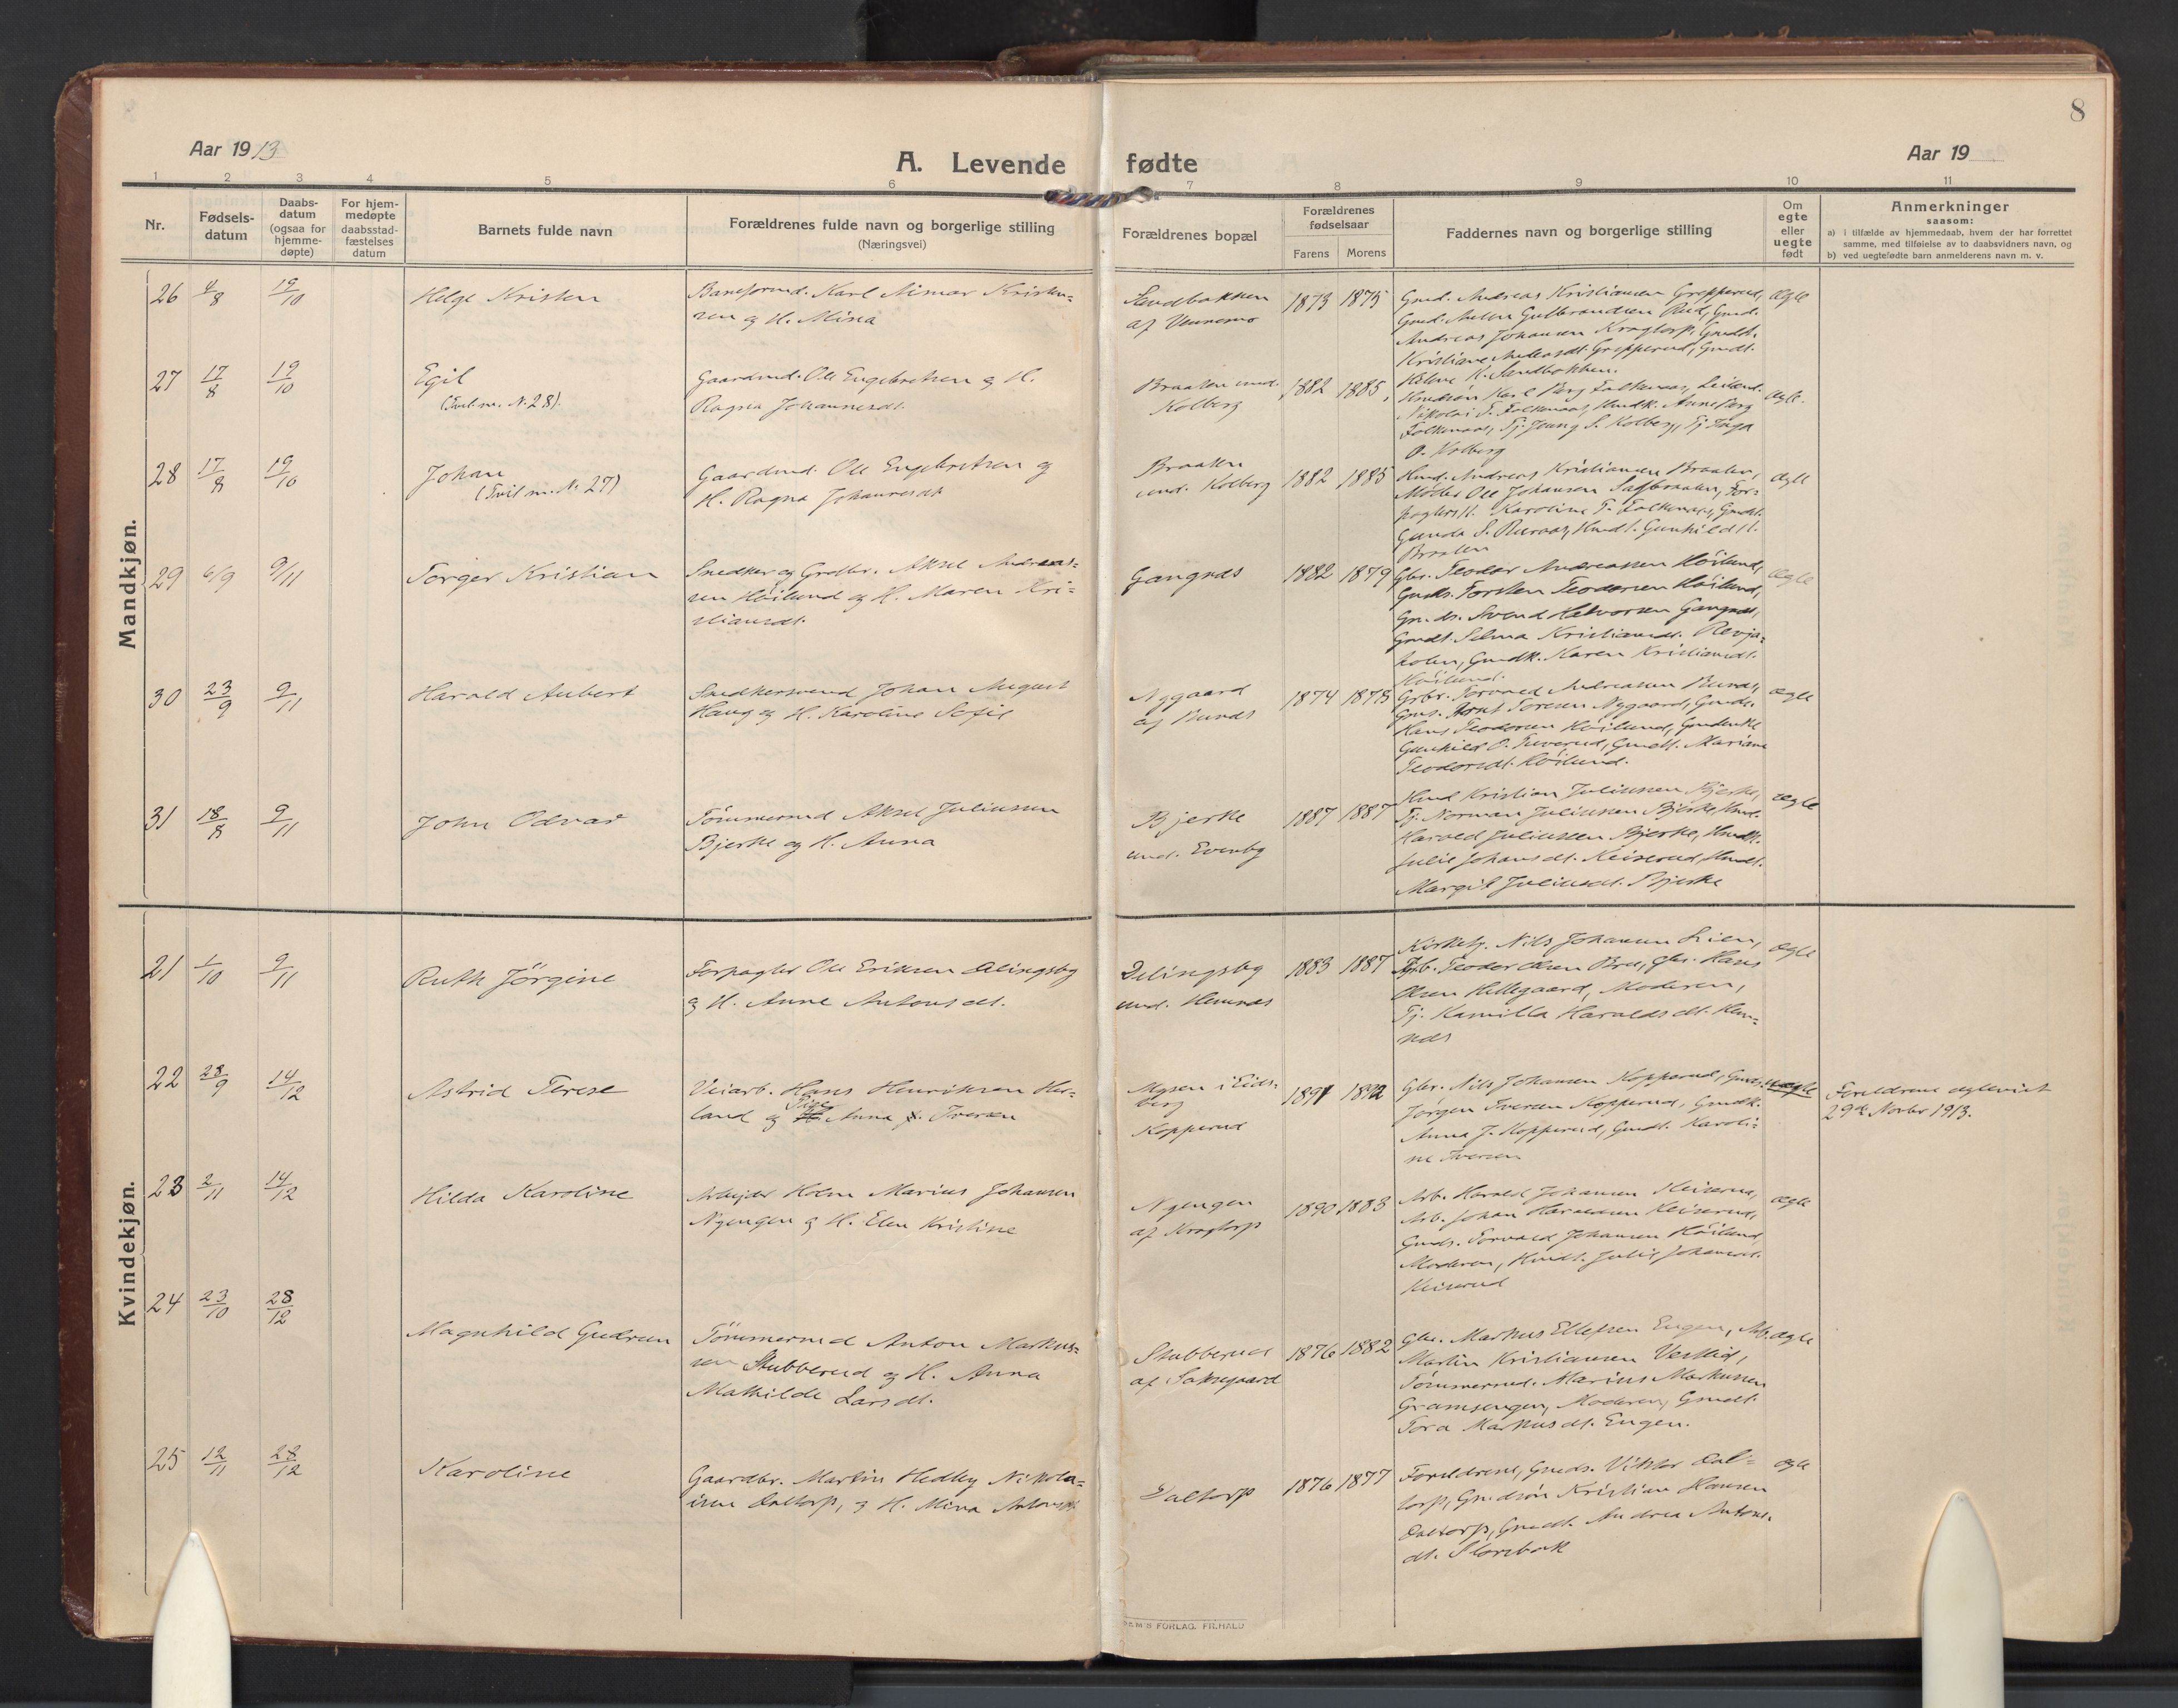 8
Aar 1913
A. Levende fødte
Aar 19
1 2 3 4 5 6 7 8 9 10 11
Nr.
Fødsels-
datum
Daabs-
datum
(ogsaa for
hjemme-
døpte)
For hjem-
medøpte
daabsstad-
fæstelses
datum
Barnets fulde navn
Forældrenes fulde navn og borgerlige stilling
(Næringsvei)
Forældrenes bopæl
Forældrenes
fødselsaar
Farens Morens
Faddernes navn og borgerlige stilling
Om
egte
eller
uegte
født
Anmerkninger
saasom:
a) i tilfælde av hjemmedaab, hvem der har forrettet
samme, med tilføielse av to daabsvidners navn, og
b) ved uegtefødte barn anmelderens navn m. v.
Mandkjøn.
26 4/8 19/10
Helge Kristen
Baneformd. Karl Aimar Kristen=
sen og H. Mina
Sandbakken
af Vennemo
1873 1875
Gmd. Andreas Kristiansen Grepperud,
Gmd. Anton Gulbrandsen Rud, Gmd.
Andreas Johansen Kragtorp, Gmdk.
Kristiane Andreasdt. Grepperud, Gmdt.
K. Sandbakken.
ægte
27 17/8 19/10
Egil
(Tvil. m. N. 28).
Gaardmd. Ole Engebretsen og H.
Ragna Johannesdt.
Braaten und.
Kolberg
1882 1885
Karl Berg Falkenaas,
Nikolai T. Falkenaas, Hmdk. Anne Berg
Falkenaas, Tj. Jenny S. Kolberg, Tj. Inga
O. Kolberg
ægte.
28 17/8 19/10
Johan
(Tvil m. N. 27)
Gaardmd. Ole Engebretsen og
H. Ragna Johannesdt
Braaten
und. Kolberg
1882 1885
Hmd. Andreas Kristiansen Braaten,
Møller Ole Johansen Sagbraaten, For=
pagters H. Karoline T. Falkenaas, Gmdt.
Gunda S. Ruraas, Hmdt. Gunhild H.
Braaten
ægte
29 6/9 9/11
Torger Kristian
Snedker og Grdbr. Aksel Andreas=
sen Høilund og H. Maren Kri=
stiansdt.
Gangnæs
1882 1879
Gbr. Teodor Andreassen Høilund,
Gmds. Torsten Teodorsen Høilund,
Gmds. Svend Halvorsen Gangnæs,
Gmdt. Selma Kristiansdt. Revja=
holen, Gmdk. Karen Kristiansdt.
Høilund.
ægte
30 23/9 9/11
Harald Aubert
Snedkersvend Johan August
Haug og H. Karoline Sofie
Nygaard
af Bunæs
1874 1875
Grbr. Torvald Andreassen Bunæs,
Gms. Arnt Toresen Nygaard, Gmds.
Hans Teodorsen Høilund, Gmdenke
Gunhild O. Tuverud, Gmdt. Mariane
Teodorsdt. Høilund.
ægte
31 18/8 9/11
John Odvar
Tømmermd Aksel Juliussen
Bjerke og H. Anna
Bjerke
und. Evenby
1887 1887
Hmd Kristian Juliussen Bjerke,
Tj. Norman Juliussen Bjerke, Hmd.
Harald Juliussen Bjerke, Hmdk.
Julie Johansdt. Keiserud, Hmdt.
Margit Juliusdt. Bjerke
ægte
Kvindekjøn.
21 1/10 9/11
Ruth Jörgine
Forpagter Ole Eriksen Delingsby
og H. Anne Antonsdt.
Delingsby
und. Hemnæs
1883 1887
Kirketj. Nils Johansen Lien,
Grb. Teodor Olsen Bru, Gbr. Hans
Olsen Hellegaard, Moderen,
Tj. Kamilla Haraldsdt. Hem=
næs
ægte
22 28/9 14/12
Astrid Terese
Veiarb. Hans Henriksen Her=
land og Pige Anna Iversen
Mysen i Eids=
berg
Kopperud
1891 1892
Gbr. Nils Johansen Kopperud, Gmds.
Jørgen Iversen Kopperud, Gmdk.
Anna J. Kopperud, Gmdt. Karoli=
ne Iversen
uægte
Foreldrene ægteviet
29de Novbr 1913.
23 2/11 14/12
Hilda Karoline
Arbejder Holm Marius Johansen
Nyengen og H. Elen Kristine
Nyengen
af Kragtorp
1890 1883
Arb. Harald Johansen Keiserud,
Arb. Johan Haraldsen Keiserud,
Gmds. Torvald Johansen Høilund
Moderen, Hmdt. Julie Johansdt.
Keiserud
ægte
24 23/10 28/12
Magnhild Gudrun
Tömmermd Anton Markus=
sen Stubberud og H. Anna
Mathilde Larsdt.
Stubberud
af Saksegaard
1876 1882
Gbr. Markus Ellefsen Engen, Arb.
Martin Kristiansen Vestlid,
Tömmermd. Marius Markussen
Gramsengen, Moderen, Gmdt.
Tora Markusdt. Engen.
ægte
25 12/11 28/12
Karoline
Gaardbr. Martin Hedley Nikola=
isen Daltorp, og H. Mina Antonsdt
Daltorp
1876 1877
Foreldrene, Gmds. Viktor Dal=
torp, Gmdsön Kristian Hansen
Daltorp, Gmdt. Andrea Antons=
dt. Slorebæk
ægte
FORLAG. FR.HALD